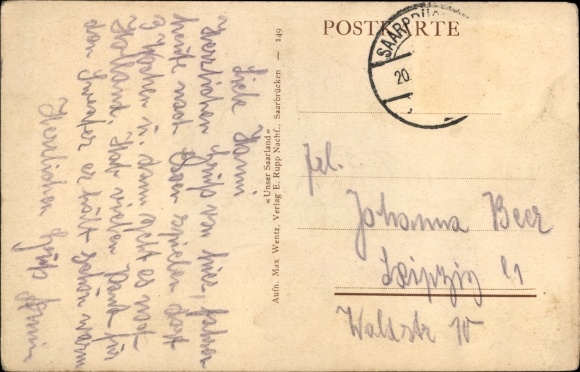 POSTKARTE
SAARBRÜC
20.
Liebe Hanni
Herzlichen Gruß von hier, fahren
heute nach Essen spielen dort
3 Wochen u. dann geht es nach
Holland. Hab vielen Dank für
den Sweater er hält schön warm
Herzlichen Gruß
« Unser Saarland »
Aufn. Max Wentz, Verlag E. Rupp Nachf., Saarbrücken — 149
Frl.
Johanna Beer
Leipzig C1
Waldstr 10